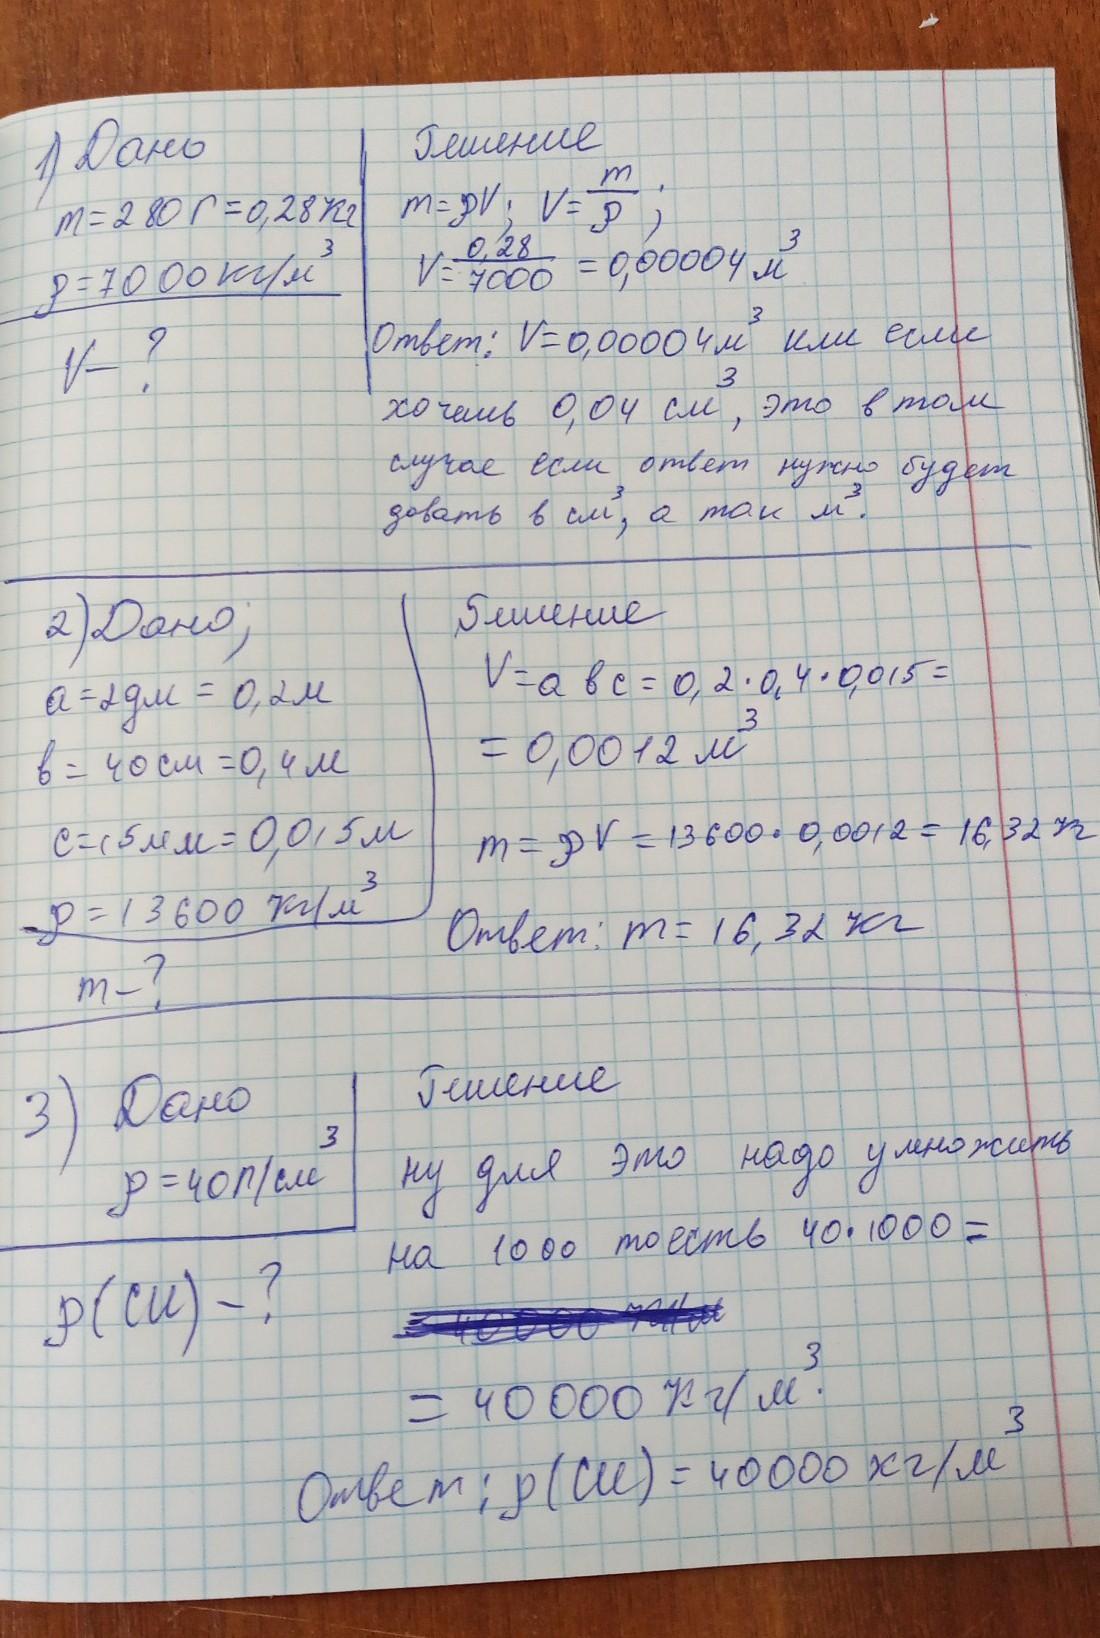 1) Дано
m=280 г=0,28 кг
ρ=7000 кг/м³
V-?
Решение
m=ρV; V=m/ρ;
V=0,28/7000=0,00004 м³
Ответ: V=0,00004 м³ или если
хочешь 0,04 см³, это в том
случае если ответ нужно будет
довать в см³, а так м³.
2) Дано;
a=2дм=0,2м
в=40см=0,4м
с=15мм=0,015м
ρ=13600 кг/м³
m-?
Решение
V=a в c=0,2·0,4·0,015=
=0,0012 м³
m=ρV=13600·0,0012=16,32 кг
Ответ: m=16,32 кг
3) Дано
ρ=40г/см³
ρ(СИ)-?
Решение
ну для это надо умножить
на 1000 тоесть 40·1000=
=40000 кг/м³.
Ответ; ρ(СИ)=40000 кг/м³